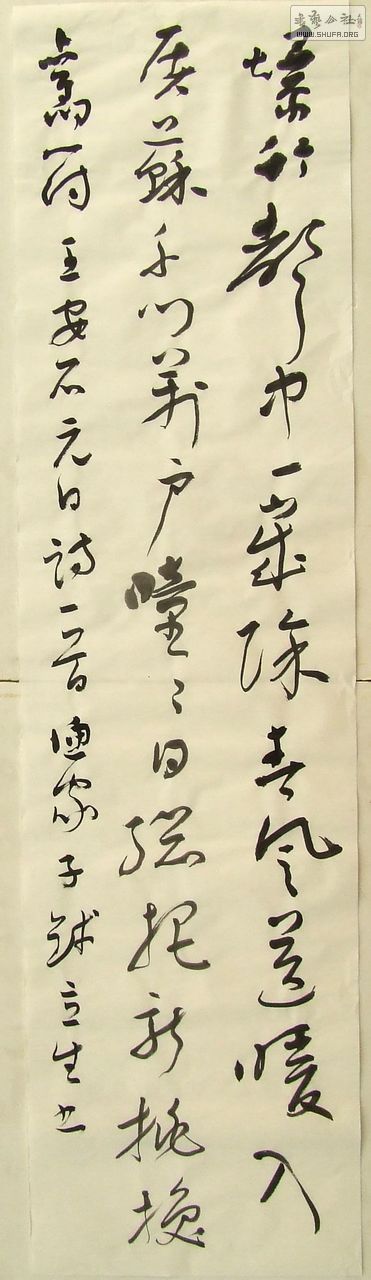 書藝公社
WWW.SHUFA.ORG
爆竹聲中一歲除春風送暖入
屠蘇千門萬戶曈〻日總把新桃換
舊符 王安石元日詩一首 家子 立生书